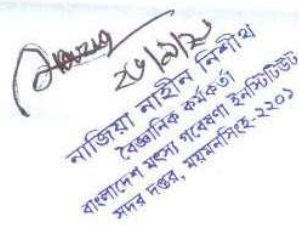 ২৬/১/২১
নাজিয়া নাহীন নিশীথ
বৈজ্ঞানিক কর্মকর্তা
বাংলাদেশ মৎস্য গবেষণা ইনস্টিটিউট
সদর দপ্তর, ময়মনসিংহ-২২০১